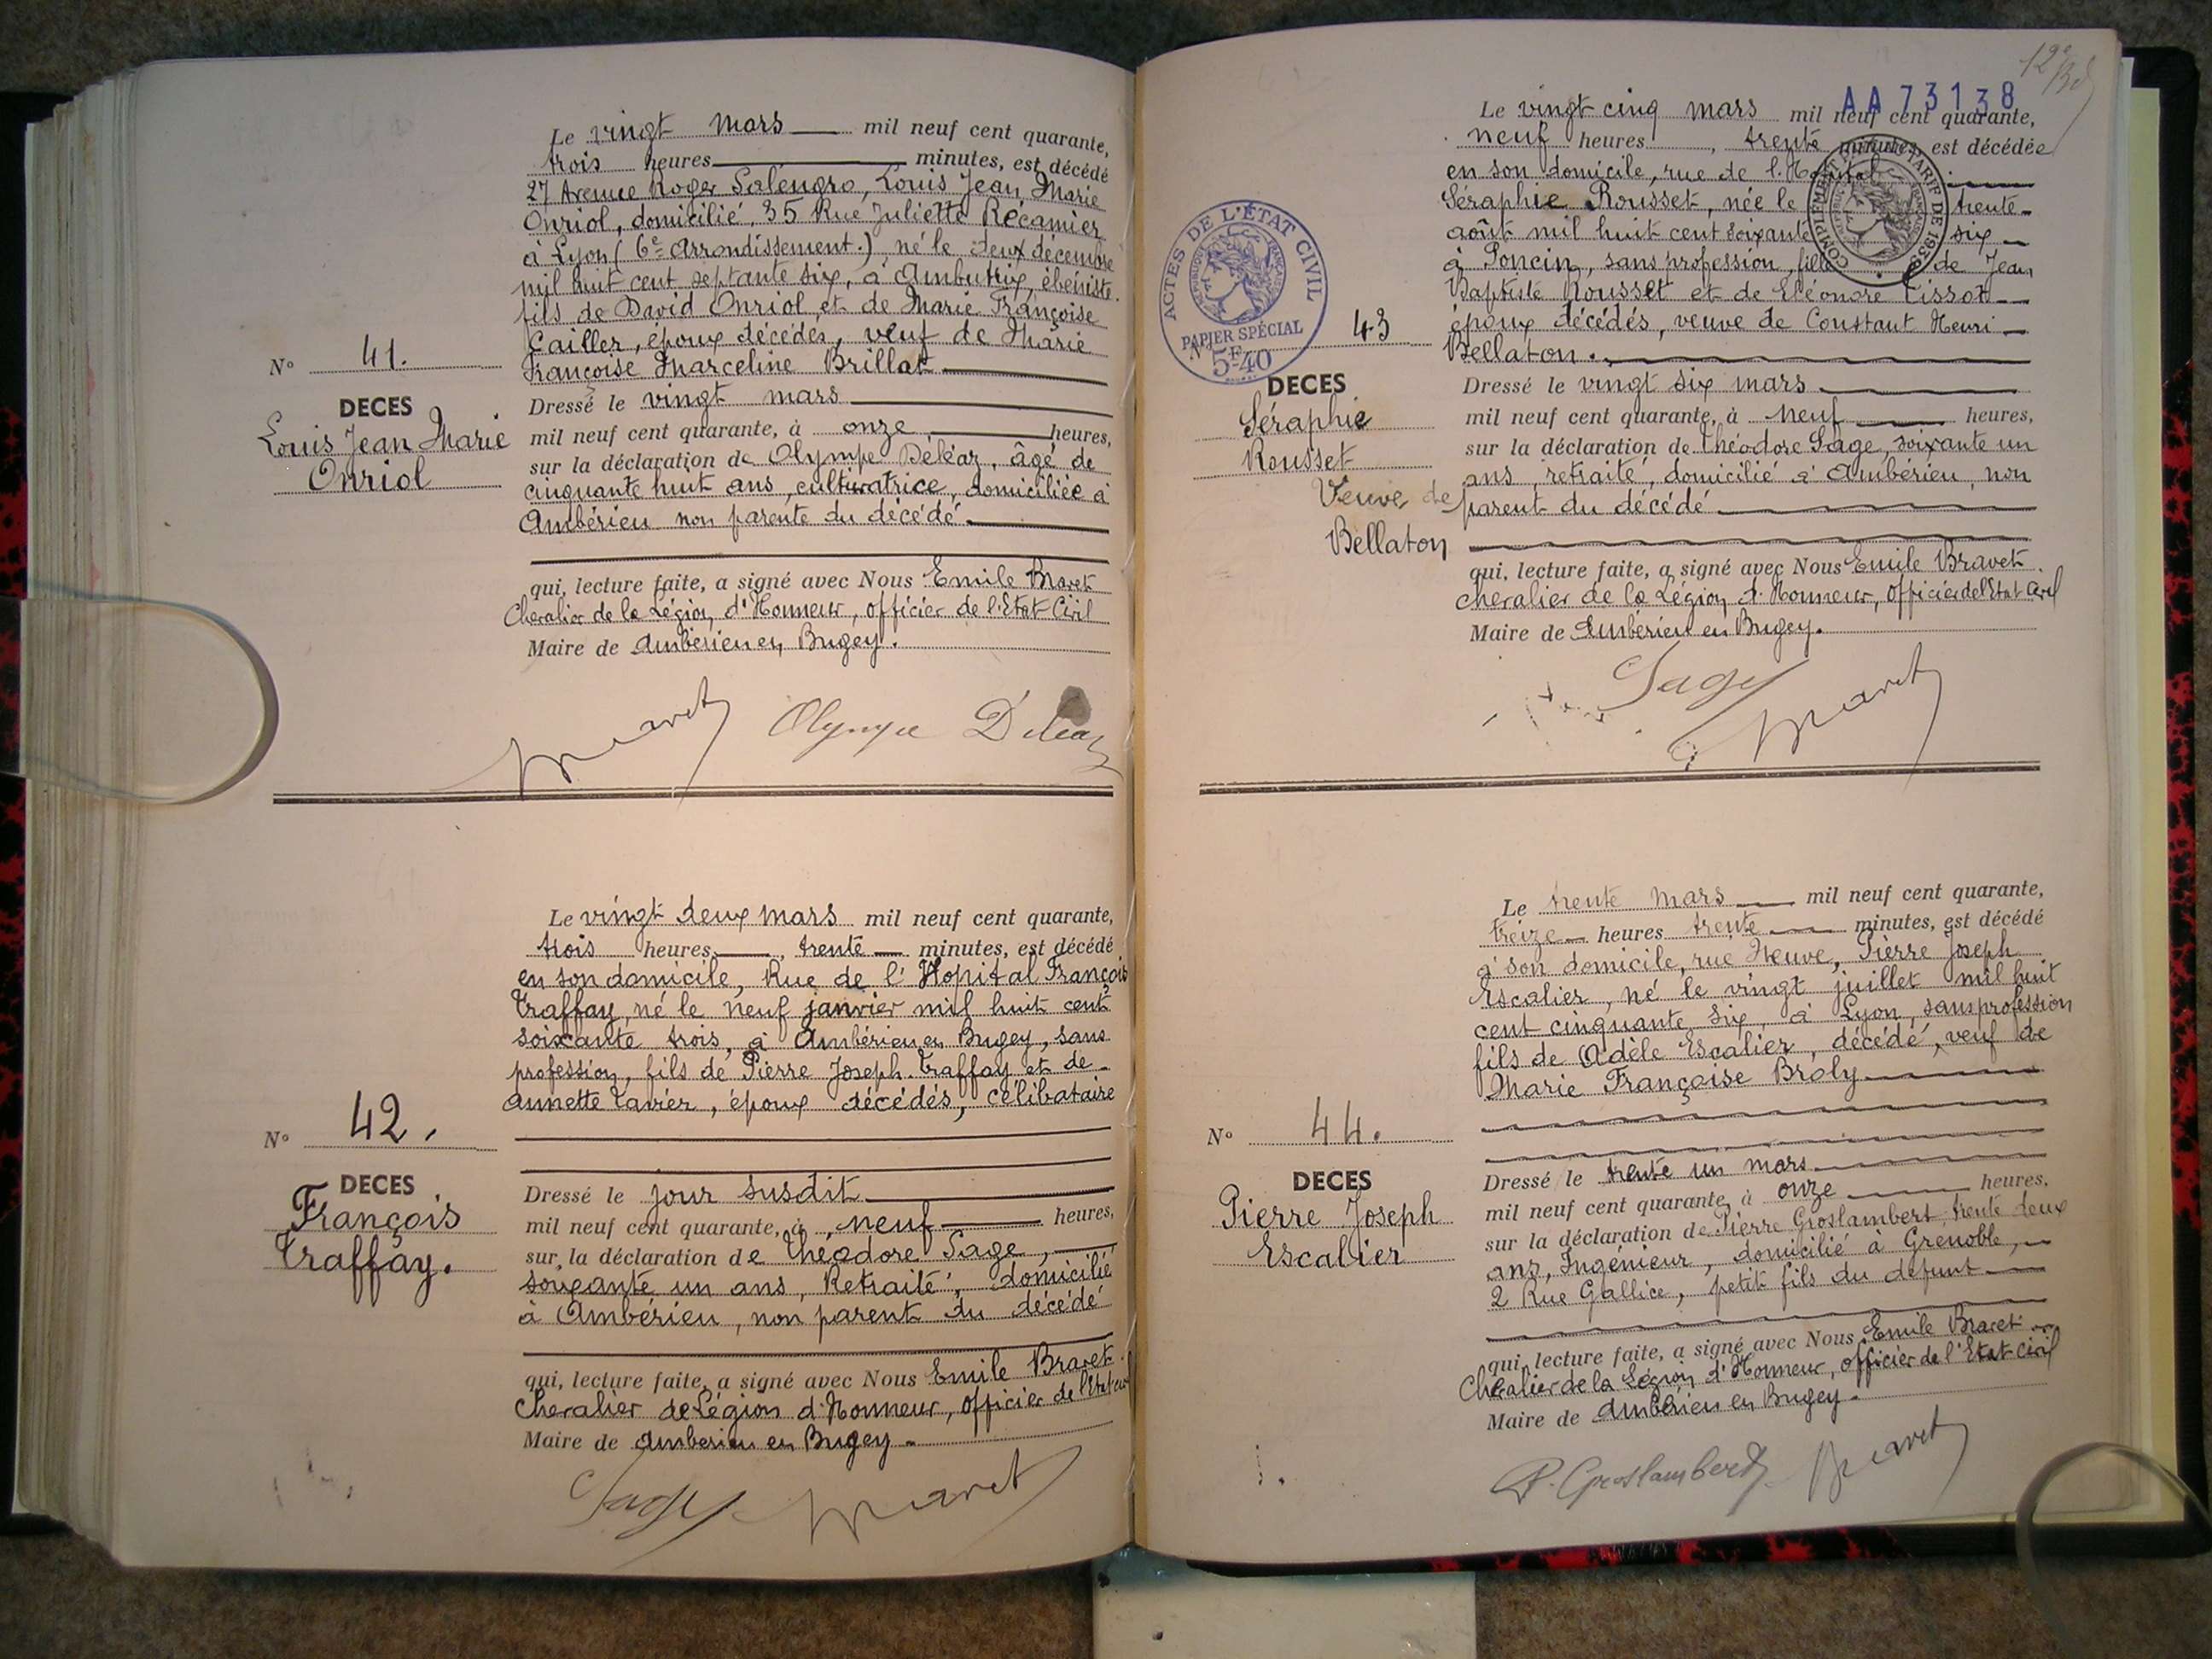 Le vingt mars mil neuf cent quarante,
trois heures minutes, est décédé
27 Avenue Roger Salengro, Louis Jean Marie
Onriol, domicilié, 35 Rue Juliette Récamier
à Lyon (6e arrondissement.), né le deux décembre
mil huit cent septante six, à Ambutrix, ébéniste.
fils de David Onriol et de Marie Françoise
Cailler, époux décédés, veuf de Marie
Françoise Marceline Brillat
Dressé le vingt mars
mil neuf cent quarante, à onze heures,
sur la déclaration de Olympe Déléaz, âgé de
cinquante huit ans, cultivatrice, domiciliée à
Ambérieu non parente du décédé.
qui, lecture faite, a signé avec Nous Emile Bravet
Chevalier de la Légion d'Honneur, officier de l'Etat-Civil
Maire de Ambérieu en Bugey.
No 41.
DECES
Louis Jean Marie
Onriol
Bravet Olympe Déléaz
Le vingt deux mars mil neuf cent quarante,
trois heures, trente minutes, est décédé
en son domicile, Rue de l'Hopital François
Traffay, né le neuf janvier mil huit cent
soixante trois, à Ambérieu en Bugey, sans
profession, fils de Pierre Joseph Traffay et de
Annette Tavier, époux décédés, célibataire
Dressé le jour susdit
mil neuf cent quarante, à neuf heures,
sur la déclaration de Théodore Sage,
soixante un ans, Retraité, domicilié
à Ambérieu, non parent du décédé
qui, lecture faite, a signé avec Nous Emile Bravet
Chevalier de Légion d'Honneur, officier de l'Etat civil
Maire de Amberieu en Bugey
No 42.
DECES
François
Traffay.
Sage Bravet
12e
AA 73138
Le vingt cinq mars mil neuf cent quarante,
neuf heures, trente minutes, est décédée
en son domicile, rue de l'Hopital
Séraphie Rousset, née le trente
août mil huit cent soixante six
à Poncin, sans profession, fille de Jean
Baptiste Rousset et de Eléonore Tissot
époux décédés, veuve de Constant Henri
Bellaton.
Dressé le vingt six mars
mil neuf cent quarante, à neuf heures,
sur la déclaration de Théodore Sage, soixante un
ans, retraité, domicilié à Ambérieu, non
parent du décédé
qui, lecture faite, a signé avec Nous Emile Bravet
chevalier de la Légion d'Honneur, officier de l'Etat Civil
Maire de Ambérieu en Bugey.
COMPLÉMENT TARIF DE 1939
ACTES DE L'ÉTAT CIVIL
RÉPUBLIQUE FRANÇAISE
PAPIER SPÉCIAL
5F40
No 43
DECES
Séraphie
Rousset
Veuve de
Bellaton
Sage
Bravet
Le trente mars mil neuf cent quarante,
treize heures trente minutes, est décédé
à son domicile, rue Neuve, Pierre Joseph
Escalier, né le vingt juillet mil huit
cent cinquante six, à Lyon, sans profession
fils de Adèle Escalier, décédé, veuf de
Marie Françoise Broly
Dressé le trente un mars
mil neuf cent quarante, à onze heures,
sur la déclaration de Pierre Groslambert, trente deux
ans, Ingénieur, domicilié à Grenoble,
2 Rue Gallice, petit fils du défunt
qui, lecture faite, a signé avec Nous Emile Bravet
Chevalier de la Légion d'Honneur, officier de l'Etat civil
Maire de Ambérieu en Bugey.
No 44.
DECES
Pierre Joseph
Escalier
P. Groslambert Bravet